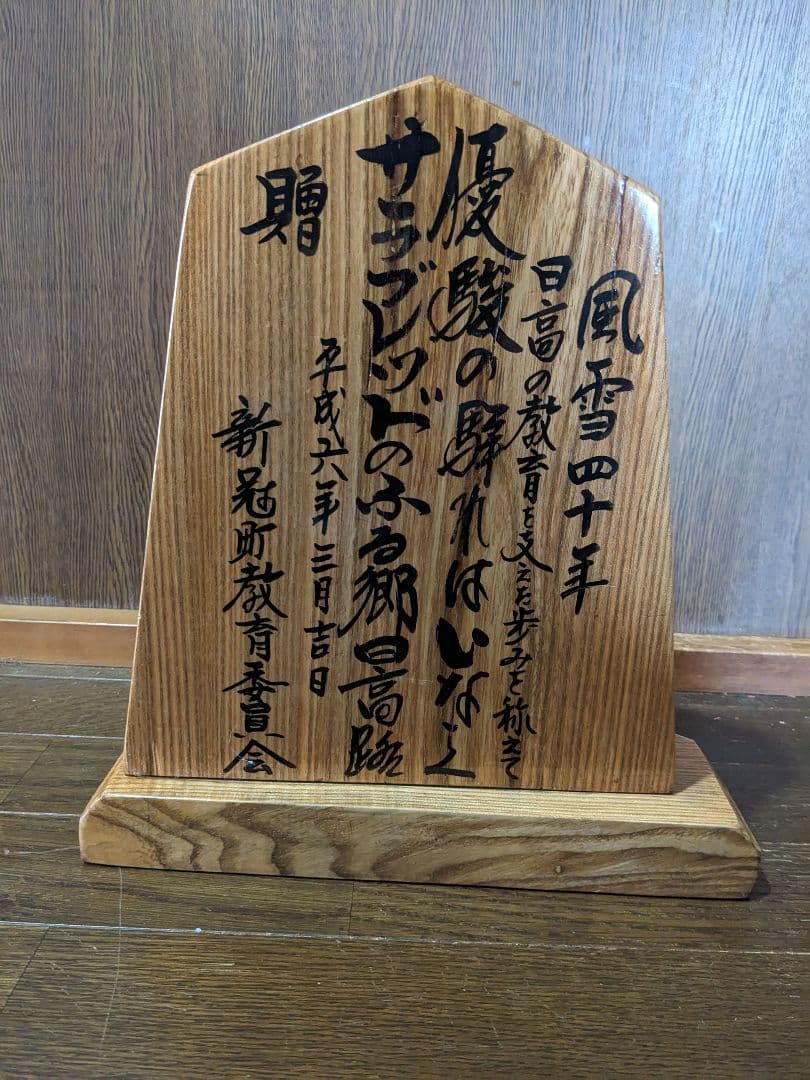 風雪四十年
日高の教育を支えた歩みを称えて
優駿の群れはいなゝく
サラブレッドのふる郷日高路
贈
平成六年三月吉日
新冠町教育委員会